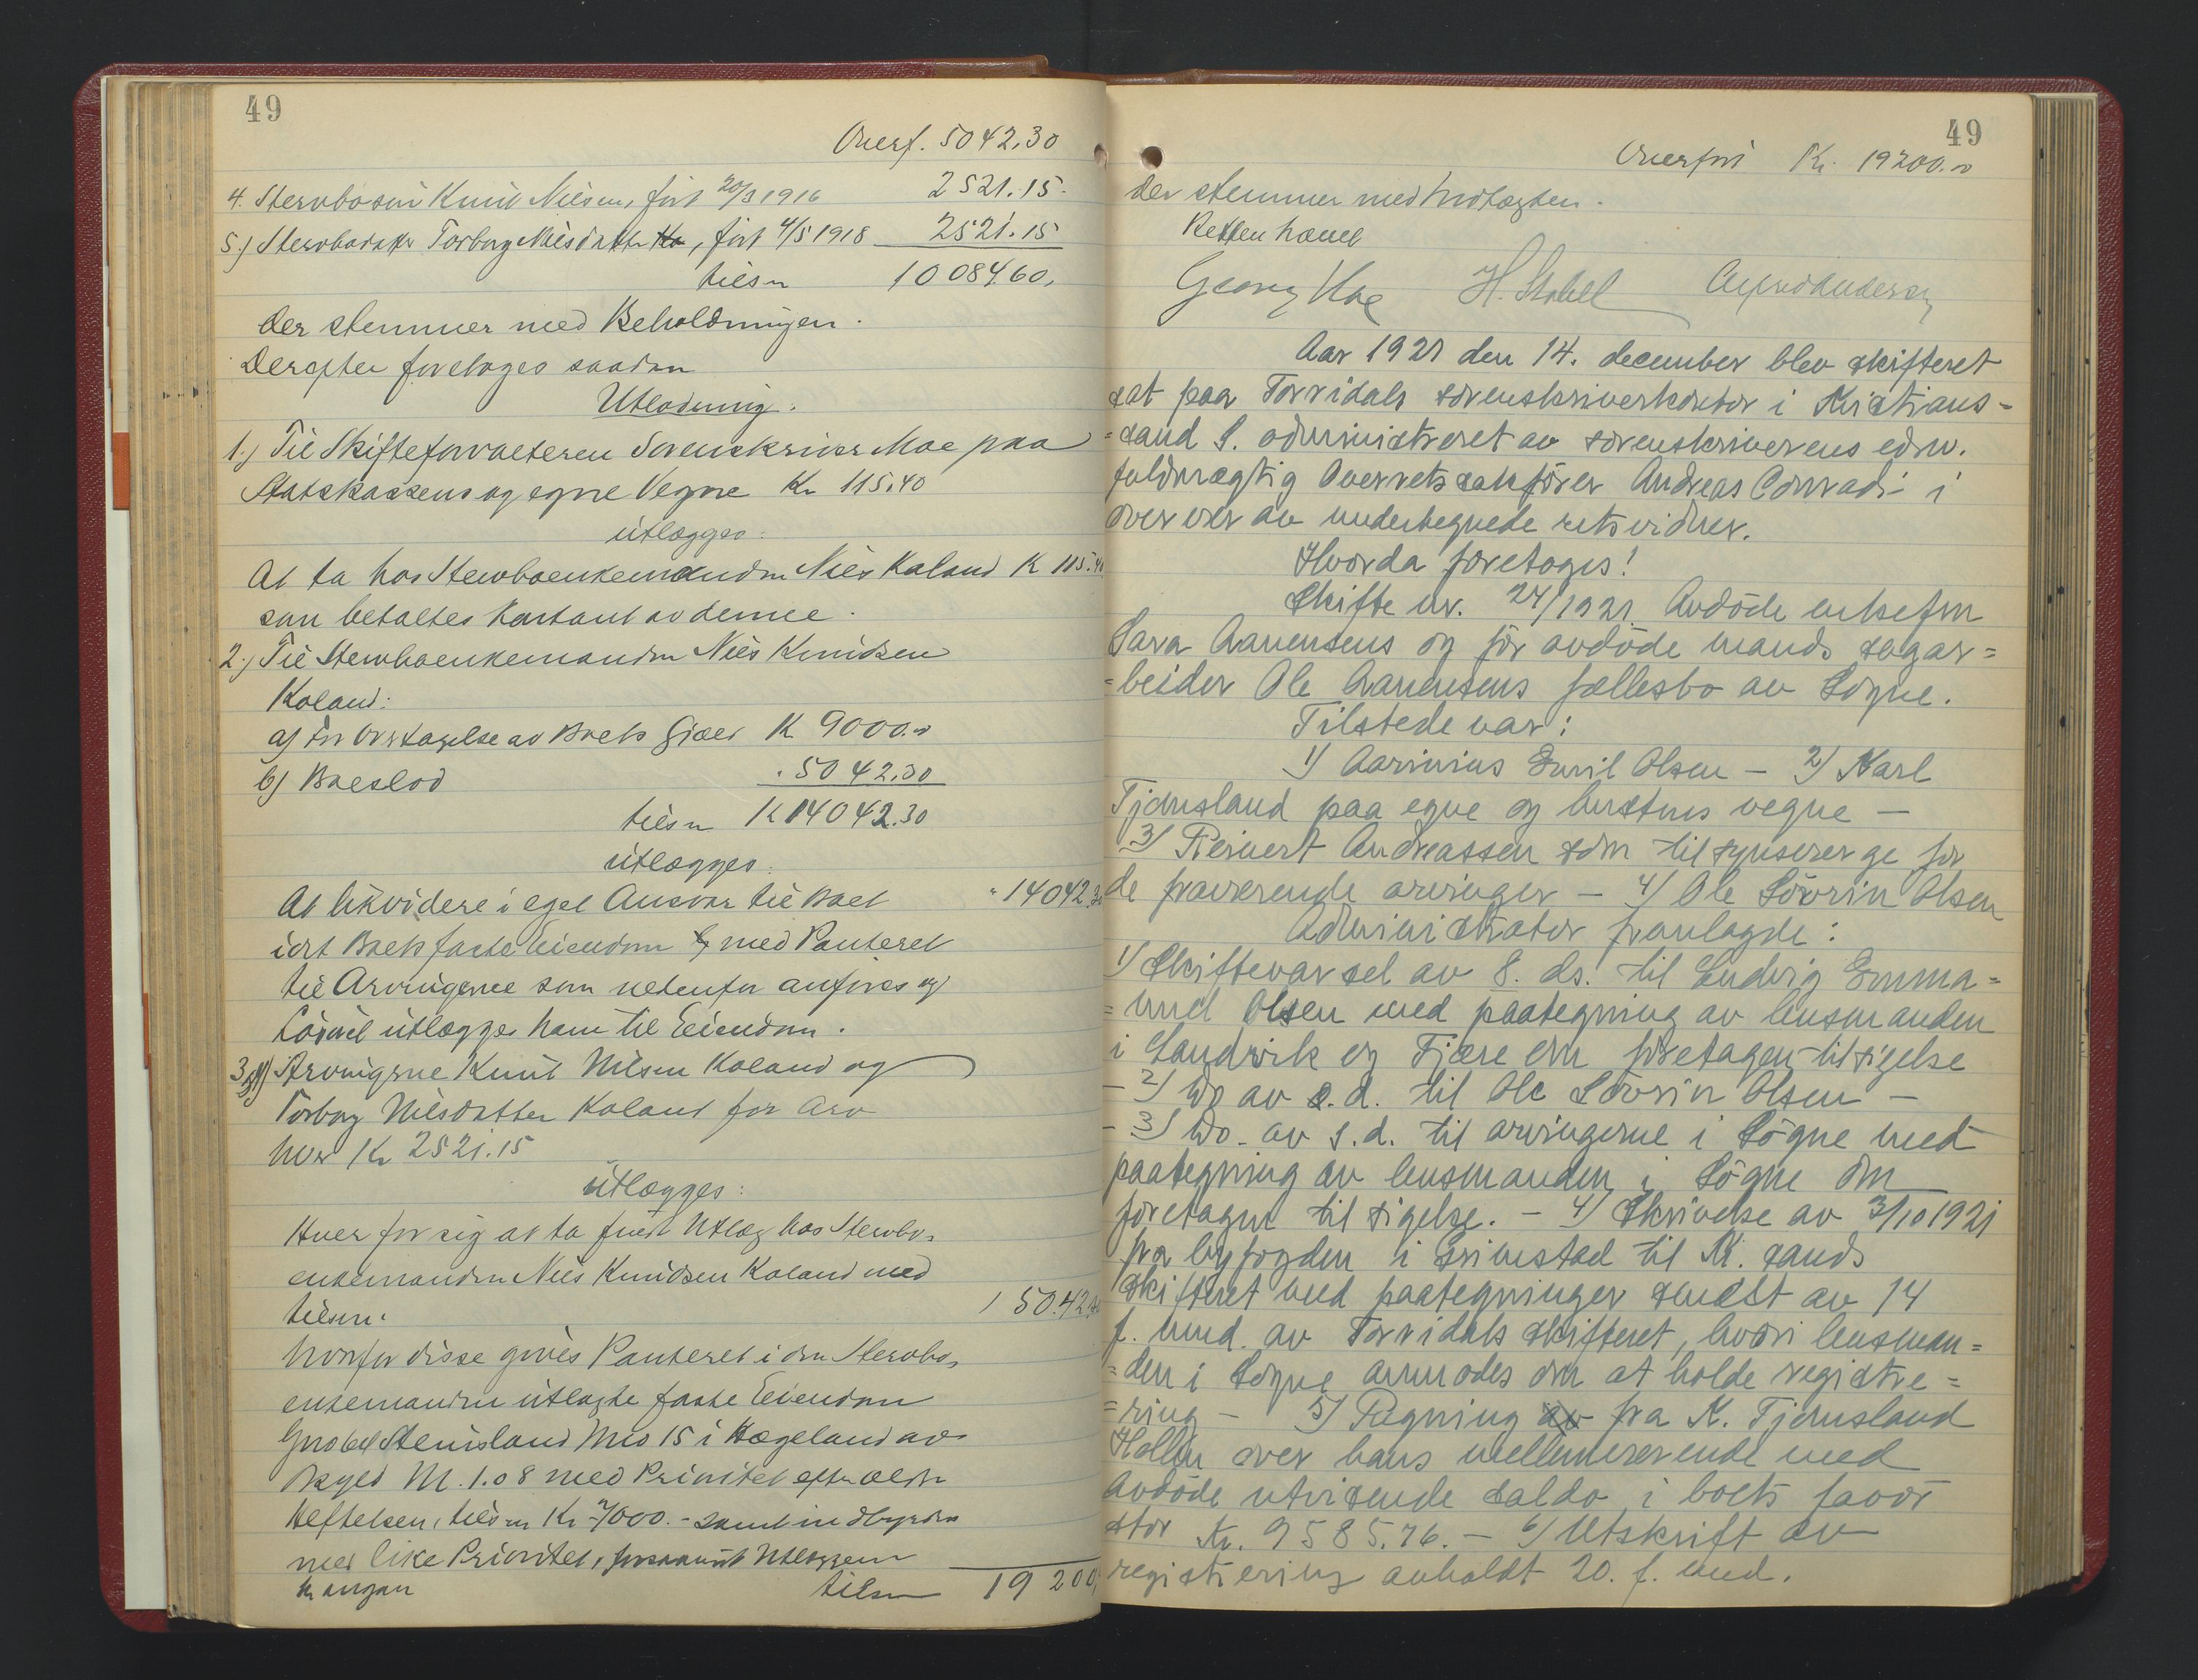 49
Overf. 5042.30
4. Stervbosøn Knut Nilsen, født 20/3 1916 2521.15.
5.) Stervbodatter Torborg Nilsdatter, født 4/5 1918 2521.15
tilsm 10084.60.
der stemmer med Beholdningen.
Derefter foretoges saadan
Utlodning.
1.) Til Skifteforvalteren Sorenskriver Moe paa
Statskassens og egne Vegne Kr 115.40
utlægges:
At ta hos Stervboenkemanden Nils Kaland K 115.40
som betaltes kontant av denne.
2.) Til Stervboenkemanden Nils Knudsen
Kaland:
a) For Overtagelse av Boets Gjæld K 9000.00
b) Boeslod " 5042.30
tilsm K 14042.30
utlægges:
At likvidere i eget Ansvar til Boet " 14042.30
idet Boets faste Eiendom med Panteret
til Arvingerne som nedenfor anføres og
Løsøre utlægges ham til Eiendom.
3 4) Arvingerne Knut Nilsen Kaland og
Torborg Nilsdatter Kaland for Arv
hver Kr 2521.15
utlægges:
Hver for sig at ta fuldt Utlæg hos Stervbo-
enkemanden Nils Knudsen Kaland med
tilsm. 5042.30
hvorfor disse gives Panteret i den Stervbo-
enkemanden utlagte faste Eiendom
Gno 6 Stenisland Bno 15 i Hægeland av
Skyld M. 1.08 med Prioritet efter ældre
Heftelser, tilsm Kr 7000.- samt
med like Prioritet, forsaavidt Utlæggene
tilsm 19200.
49
Overført Kr. 19200.00
der stemmer med Indtægten.
Retten hævet
Georg Moe H. Stabell Anderssen
Aar 1921 den 14. december blev skifteret
sat paa Torridals sorenskriverkontor i Kristians-
=sand S. administreret av sorenskriverens edsv.
fuldmægtig Overretssakfører Andreas Conradi i
overvær av undertegnede retsvidner.
Hvorda foretoges!
Skifte nr. 24/1921 Avdøde enkefru
Sara Aanensens og før avdøde mands sagar=
=beider Ole Aanensens fællesbo av Søgne.
Tilstede var:
1) Aarinius Emil Olsen – 2) Karl
Tjomsland paa egne og hustrus vegne –
3) Reinert Andreassen som tilsynsverge for
de fraværende arvinger – 4) Ole Søvrin Olsen
Administrator fremlagde:
1) Skiftevarsel av 8. ds. til Ludvig Emma=
=nuel Olsen med paategning av lensmanden
i Landvik og Fjære om foretagen tilsigelse
– 2) Do av s.d. til Ole Søvrin Olsen –
– 3) Do. av s.d. til arvingerne i Søgne med
paategning av lensmanden i Søgne om
foretagen tilsigelse. – 4) Skrivelse av 3/10 1921
fra byfogden i Grimstad til Kr.sands
skifteret med paategninger senest av 14
f. mnd. av Torridals skifteret, hvori lensman=
=den i Søgne anmodes om at holde registre=
=ring – 5) Regning av fra K. Tjomsland
Høllen over hans mellemværende med
avdøde utvisende saldo i boets favør
stor Kr. 9585.76. – 6) Utskrift av
registrering avholdt 20. f. mnd.